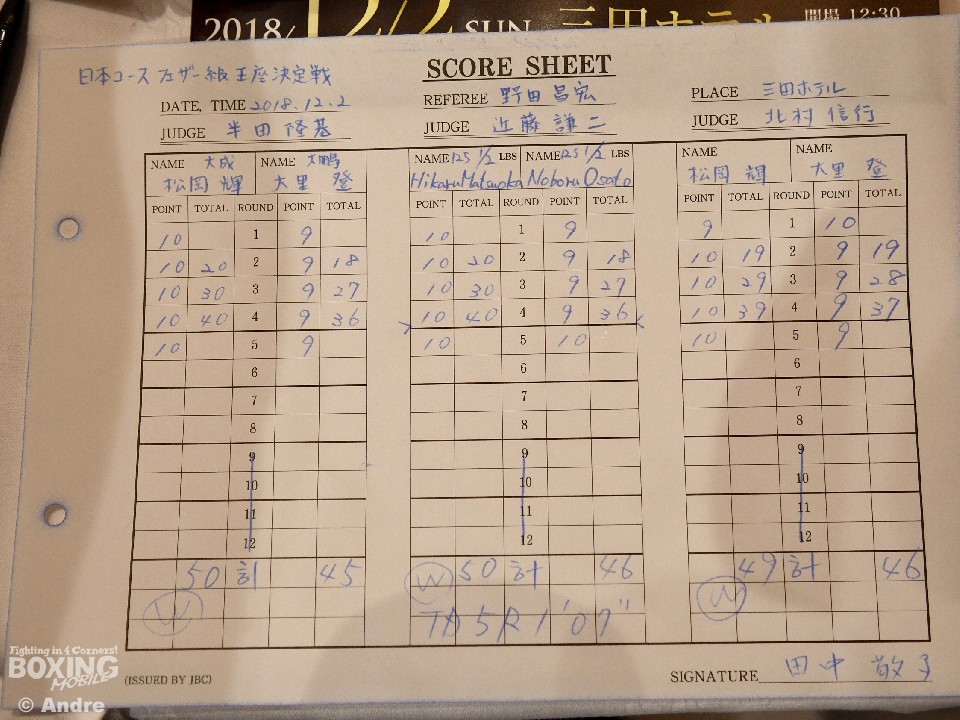 2018/12/2 SUN 三田ホテル 開場 12:30
日本ユース フェザー級王座決定戦
SCORE SHEET
DATE, TIME 2018.12.2 REFEREE 野田昌宏 PLACE 三田ホテル
JUDGE 半田隆基 JUDGE 近藤謙二 JUDGE 北村信行
NAME 大成 NAME 大鵬 NAME 125 1/2 LBS NAME 125 1/2 LBS NAME NAME
松岡輝 大里登 Hikaru Matsuoka Noboru Osato 松岡輝 大里登
POINT TOTAL ROUND POINT TOTAL POINT TOTAL ROUND POINT TOTAL POINT TOTAL ROUND POINT TOTAL
10 1 9 10 1 9 9 1 10
10 20 2 9 18 10 20 2 9 18 10 19 2 9 19
10 30 3 9 27 10 30 3 9 27 10 29 3 9 28
10 40 4 9 36 10 40 4 9 36 10 39 4 9 37
10 5 9 10 5 10 10 5 9
6 6 6
7 7 7
8 8 8
9 9 9
10 10 10
11 11 11
12 12 12
50 計 45 W 50 計 46 49 計 46
W W
5R 1'07"
(ISSUED BY JBC) SIGNATURE 田中
Fighting in 4 Corners!
BOXING
MOBILE
© Andre